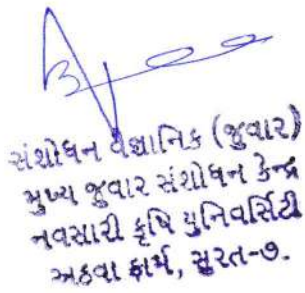 સંશોધન વૈજ્ઞાનિક (જુવાર)
મુખ્ય જુવાર સંશોધન કેન્દ્ર
નવસારી કૃષિ યુનિવર્સિટી
અઠવા ફાર્મ, સુરત-૭.